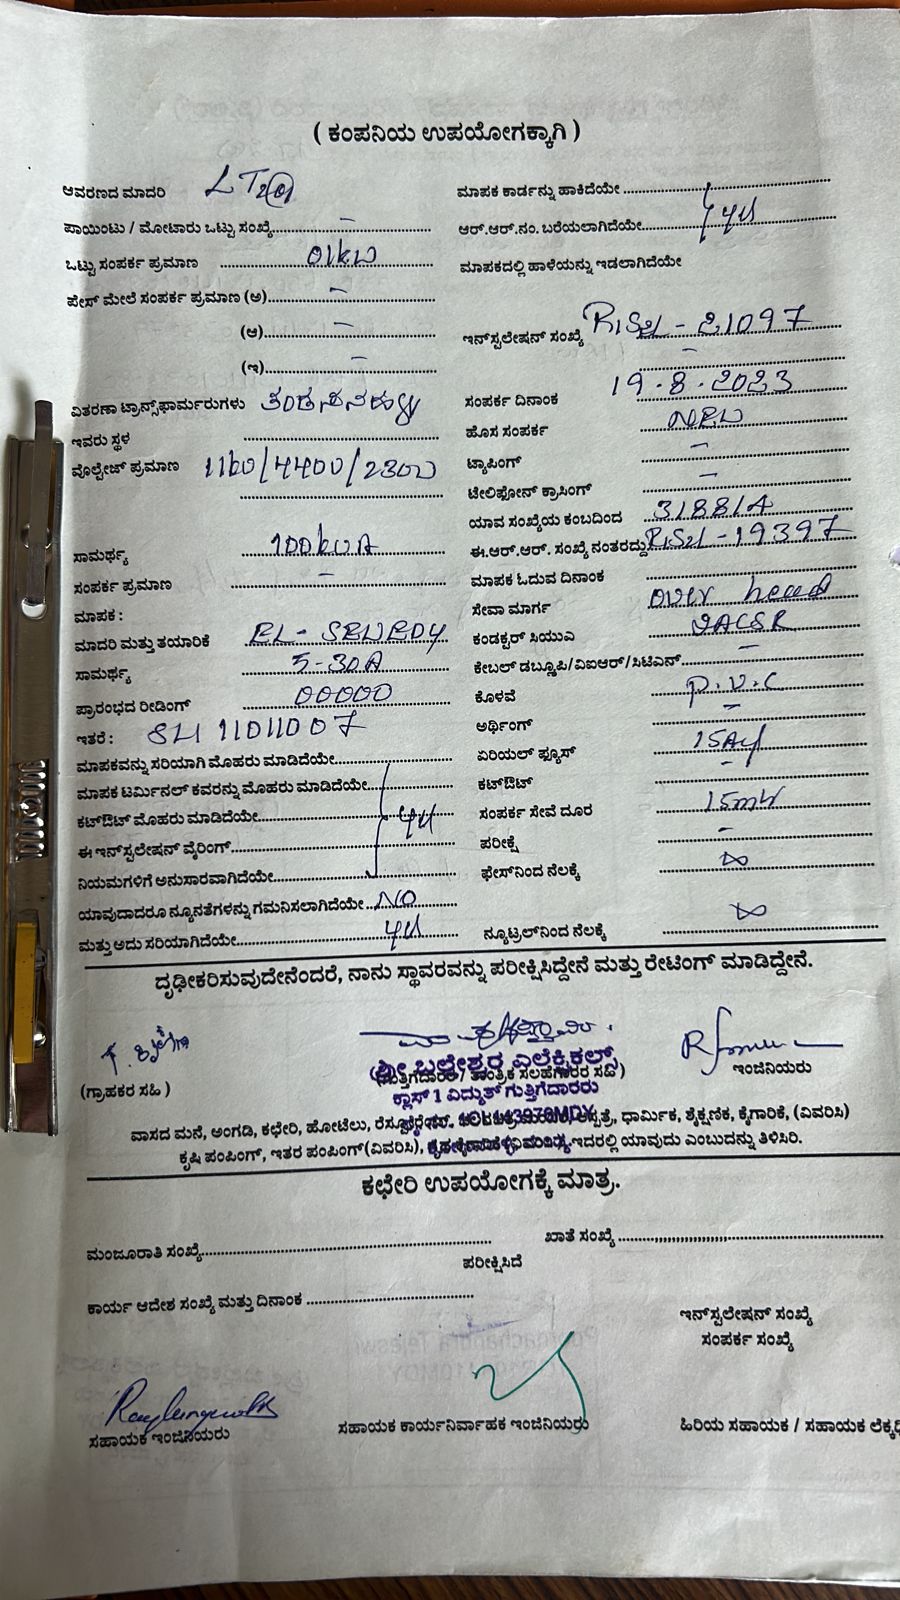 ( ಕಂಪನಿಯ ಉಪಯೋಗಕ್ಕಾಗಿ )
ಆವರಣದ ಮಾದರಿ LT2(a)
ಪಾಯಿಂಟು / ಮೋಟಾರು ಒಟ್ಟು ಸಂಖ್ಯೆ -
ಒಟ್ಟು ಸಂಪರ್ಕ ಪ್ರಮಾಣ 01kw
ಪೇಸ್ ಮೇಲೆ ಸಂಪರ್ಕ ಪ್ರಮಾಣ (ಅ) -
(ಆ) -
(ಇ) -
ವಿತರಣಾ ಟ್ರಾನ್ಸ್‌ಫಾರ್ಮರುಗಳು
ಇವರು ಸ್ಥಳ
ವೊಲ್ಟೇಜ್ ಪ್ರಮಾಣ
ಸಾಮರ್ಥ್ಯ 100kVA
ಸಂಪರ್ಕ ಪ್ರಮಾಣ -
ಮಾಪಕ :
ಮಾದರಿ ಮತ್ತು ತಯಾರಿಕೆ EL- SEWEDY
ಸಾಮರ್ಥ್ಯ 5-30A
ಪ್ರಾರಂಭದ ರೀಡಿಂಗ್ 00000
ಇತರೆ : 11011007
ಮಾಪಕವನ್ನು ಸರಿಯಾಗಿ ಮೊಹರು ಮಾಡಿದೆಯೇ
ಮಾಪಕ ಟರ್ಮಿನಲ್ ಕವರನ್ನು ಮೊಹರು ಮಾಡಿದೆಯೇ
ಕಟ್‌ಔಟ್ ಮೊಹರು ಮಾಡಿದೆಯೇ yes
ಈ ಇನ್‌ಸ್ಟಲೇಷನ್ ವೈರಿಂಗ್
ನಿಯಮಗಳಿಗೆ ಅನುಸಾರವಾಗಿದೆಯೇ
ಯಾವುದಾದರೂ ನ್ಯೂನತೆಗಳನ್ನು ಗಮನಿಸಲಾಗಿದೆಯೇ NO
ಮತ್ತು ಅದು ಸರಿಯಾಗಿದೆಯೇ yes
ಮಾಪಕ ಕಾರ್ಡನ್ನು ಹಾಕಿದೆಯೇ
ಆರ್.ಆರ್.ನಂ. ಬರೆಯಲಾಗಿದೆಯೇ yes
ಮಾಪಕದಲ್ಲಿ ಹಾಳೆಯನ್ನು ಇಡಲಾಗಿದೆಯೇ
ಇನ್‌ಸ್ಟಲೇಷನ್ ಸಂಖ್ಯೆ - 21097
-
ಸಂಪರ್ಕ ದಿನಾಂಕ 19.8.2023
ಹೊಸ ಸಂಪರ್ಕ NEW
ಟ್ಯಾಪಿಂಗ್ -
ಟೇಲಿಫೋನ್ ಕ್ರಾಸಿಂಗ್ -
ಯಾವ ಸಂಖ್ಯೆಯ ಕಂಬದಿಂದ 31881A
ಈ.ಆರ್.ಆರ್. ಸಂಖ್ಯೆ ನಂತರದ್ದು - 19397
ಮಾಪಕ ಓದುವ ದಿನಾಂಕ
ಸೇವಾ ಮಾರ್ಗ over head
ಕಂಡಕ್ಟರ್ ಸಿಯುಎ
ಕೇಬಲ್ ಡಬ್ಲ್ಯೂಪಿ/ವಿಐಆರ್/ಸಿಟಿಎಸ್ -
ಕೊಳವೆ P.V.C
ಅರ್ಥಿಂಗ್ -
ಏರಿಯಲ್ ಫ್ಯೂಸ್
ಕಟ್‌ಔಟ್ -
ಸಂಪರ್ಕ ಸೇವೆ ದೂರ
ಪರೀಕ್ಷೆ -
ಫೇಸ್‌ನಿಂದ ನೆಲಕ್ಕೆ ∞
ನ್ಯೂಟ್ರಲ್‌ನಿಂದ ನೆಲಕ್ಕೆ ∞
ದೃಢೀಕರಿಸುವುದೇನೆಂದರೆ, ನಾನು ಸ್ಥಾವರವನ್ನು ಪರೀಕ್ಷಿಸಿದ್ದೇನೆ ಮತ್ತು ರೇಟಿಂಗ್ ಮಾಡಿದ್ದೇನೆ.
ಶ್ರೀ ಬಲ್ಲೇಶ್ವರ ಎಲೆಕ್ಟ್ರಿಕಲ್ಸ್
(ಗ್ರಾಹಕರ ಸಹಿ ) (ಗುತ್ತಿಗೆದಾರರ / ತಾಂತ್ರಿಕ ಸಲಹೆಗಾರರ ಸಹಿ ) ಇಂಜಿನಿಯರು
ಕ್ಲಾಸ್ 1 ವಿದ್ಯುತ್ ಗುತ್ತಿಗೆದಾರರು
ವಾಸದ ಮನೆ, ಅಂಗಡಿ, ಕಛೇರಿ, ಹೋಟೆಲು, ಆಸ್ಪತ್ರೆ, ಧಾರ್ಮಿಕ, ಶೈಕ್ಷಣಿಕ, ಕೈಗಾರಿಕೆ, (ವಿವರಿಸಿ)
ಕೃಷಿ ಪಂಪಿಂಗ್, ಇತರ ಪಂಪಿಂಗ್(ವಿವರಿಸಿ), ಇದರಲ್ಲಿ ಯಾವುದು ಎಂಬುದನ್ನು ತಿಳಿಸಿರಿ.
ಕಛೇರಿ ಉಪಯೋಗಕ್ಕೆ ಮಾತ್ರ.
ಮಂಜೂರಾತಿ ಸಂಖ್ಯೆ ಖಾತೆ ಸಂಖ್ಯೆ
ಪರೀಕ್ಷಿಸಿದೆ
ಕಾರ್ಯ ಆದೇಶ ಸಂಖ್ಯೆ ಮತ್ತು ದಿನಾಂಕ
ಇನ್‌ಸ್ಟಲೇಷನ್ ಸಂಖ್ಯೆ
ಸಂಪರ್ಕ ಸಂಖ್ಯೆ
ಸಹಾಯಕ ಇಂಜಿನಿಯರು ಸಹಾಯಕ ಕಾರ್ಯನಿರ್ವಾಹಕ ಇಂಜಿನಿಯರು ಹಿರಿಯ ಸಹಾಯಕ / ಸಹಾಯಕ